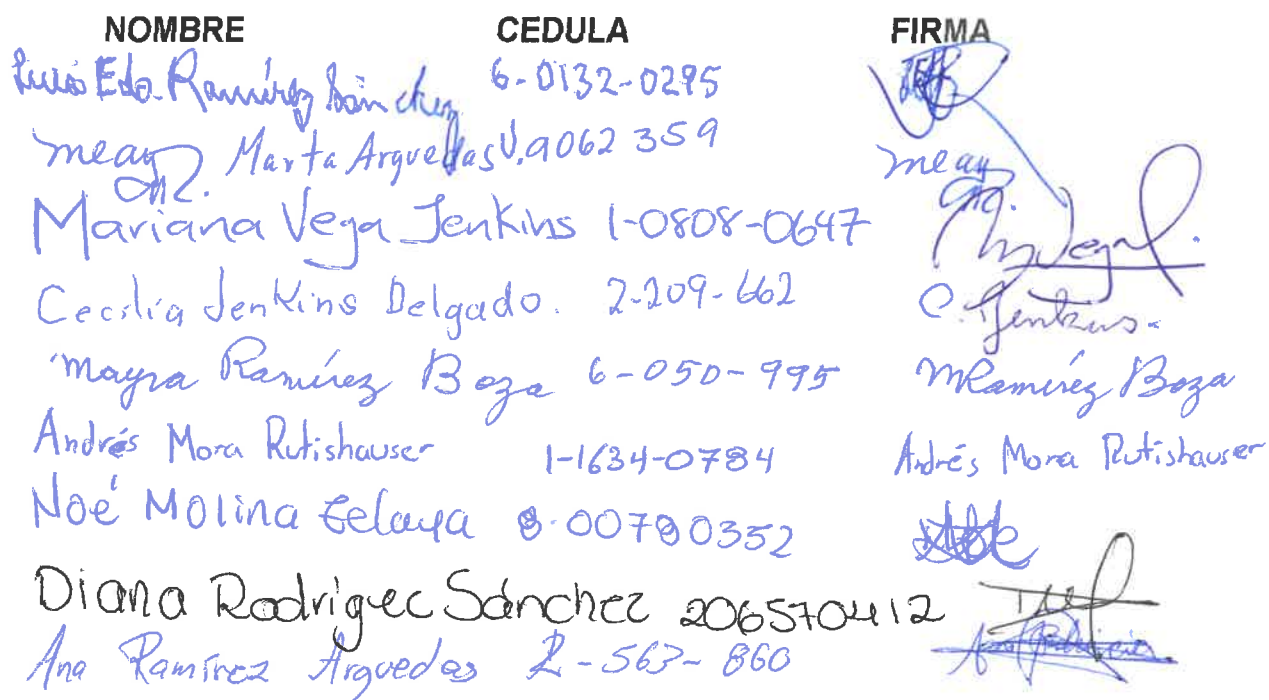 NOMBRE CEDULA FIRMA
Luis Edo. Ramírez Sánchez 6-0132-0295
meay Marta Arguedas V. 9062 359 meay
Mariana Vega Jenkins 1-0808-0647 Vega
Cecilia Jenkins Delgado. 2-209-662 C. Jenkins.
Mayra Ramírez Boza 6-050-995 MRamírez Boza
Andrés Mora Rutishauser 1-1634-0784 Andrés Mora Rutishauser
Noé Molina Celaya 8-00790352
Diana Rodríguec Sánchez 206570412
Ana Ramírez Arguedas 2-563-860